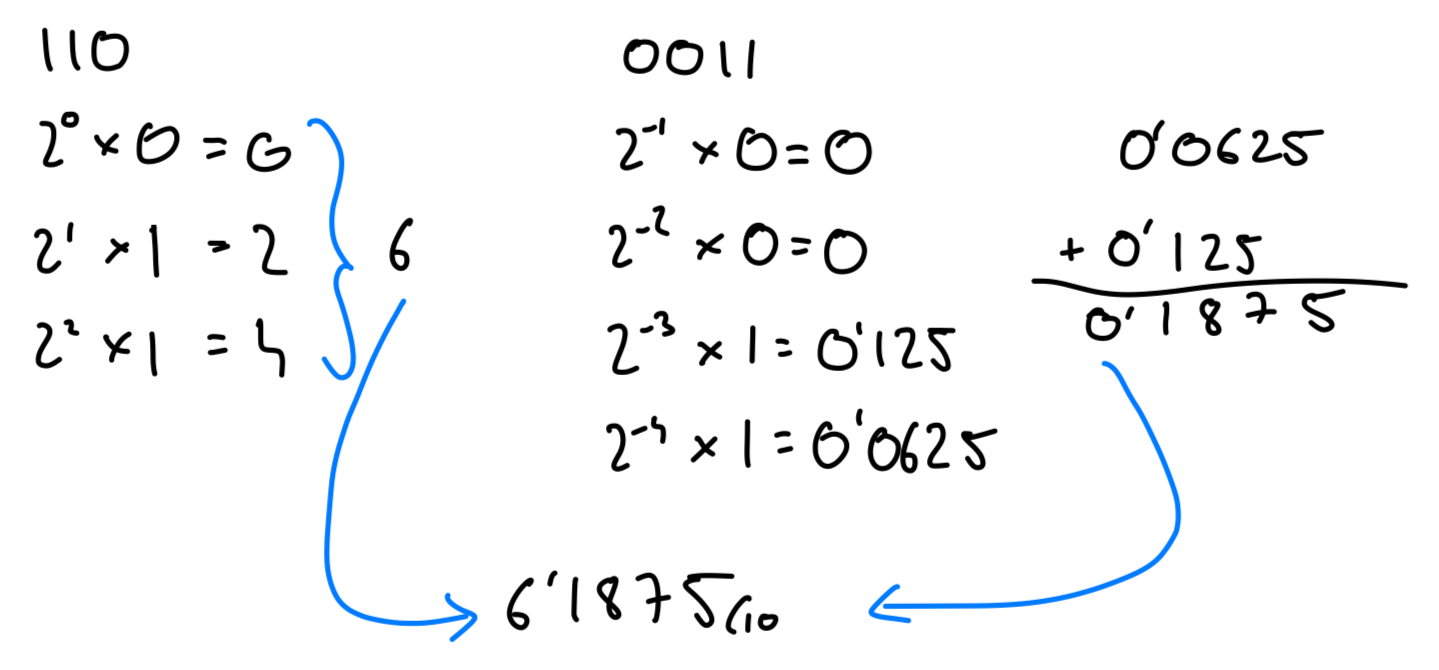 110
2⁰ × 0 = 0
2¹ × 1 = 2
2² × 1 = 4
6
0011
2⁻¹ × 0 = 0
2⁻² × 0 = 0
2⁻³ × 1 = 0'125
2⁻⁴ × 1 = 0'0625
0'0625
+ 0'125
0'1875
6'1875(10